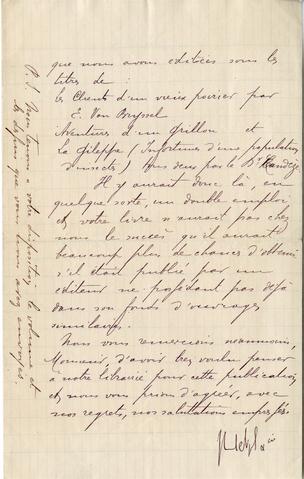 que nous avons éditées sous les
titres de :
les Clients d'un vieux poirier par
E. Van Bruyssel
Aventures d'un Grillon et
La Gileppe (Infortunes d'une population
d'insectes) tous deux par le Dr Candèze.
Il y aurait donc là, en
quelque sorte, un double emploi
et votre livre n'aurait pas chez
nous le succès qu'il aurait
beaucoup plus de chances d'obtenir
s'il était publié par un
éditeur ne possédant pas déjà
dans son fonds d'ouvrages
similaires.
Nous vous remercions néanmoins,
Monsieur, d'avoir bien voulu penser
à notre librairie pour cette publication,
et nous vous prions d'agréer, avec
nos regrets, nos salutations empressées
J Hetzel & Cie
P.S. Nous tenons à votre disposition le volume et
les dessins que vous nous avez envoyés.